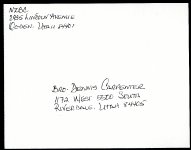 NZBC
2955 Lincoln Avenue
Ogden, Utah 84401
Bro. Dennis Carpenter
1172 West 5350 South
Riverdale, Utah 84405